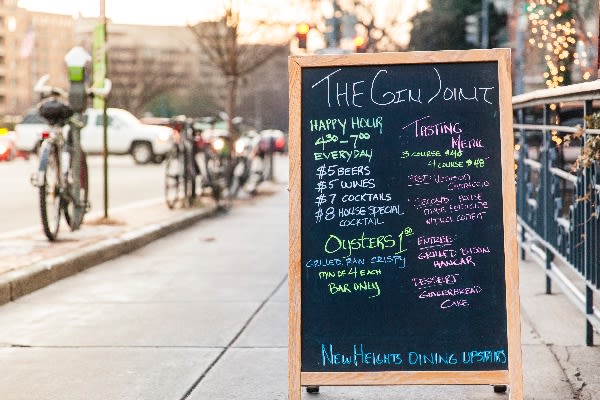 The Gin Joint
Happy Hour
4³⁰-7⁰⁰
Everyday
$5 Beers
$5 Wines
$7 Cocktails
$8 House Special
Cocktail
Oysters 1⁵⁰
Grilled, Raw, Crispy
Min of 4 each
Bar Only
Tasting
Menu
3 course $40
4 course $48
First: Venison
Carpaccio
Second:
Entree:
Grilled Bison
Hangar
Dessert:
Gingerbread
Cake
New Heights Dining Upstairs